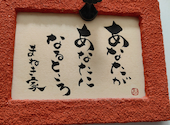 あなたが
あなたに
なるところ
まねき家